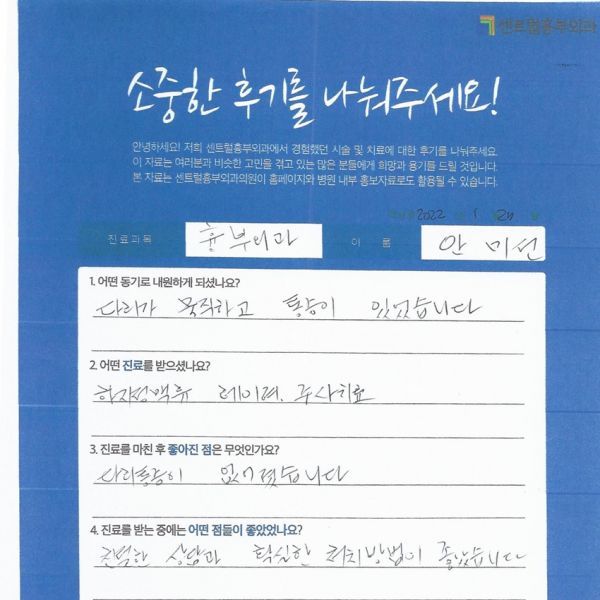 센트럴흉부외과
소중한 후기를 나눠주세요!
안녕하세요! 저희 센트럴흉부외과에서 경험했던 시술 및 치료에 대한 후기를 나눠주세요.
이 자료는 여러분과 비슷한 고민을 겪고 있는 많은 분들에게 희망과 용기를 드릴 것입니다.
본 자료는 센트럴흉부외과의원이 홈페이지와 병원 내부 홍보자료로도 활용될 수 있습니다.
2022 1
진료과목 흉부외과 이 름 안미선
1. 어떤 동기로 내원하게 되셨나요?
다리가 묵직하고 통증이 있었습니다
2. 어떤 진료를 받으셨나요?
하지정맥류 레이저, 주사치료
3. 진료를 마친 후 좋아진 점은 무엇인가요?
다리통증이 없어졌습니다
4. 진료를 받는 중에는 어떤 점들이 좋았었나요?
친절한 상담과 확실한 처치방법이 좋았습니다